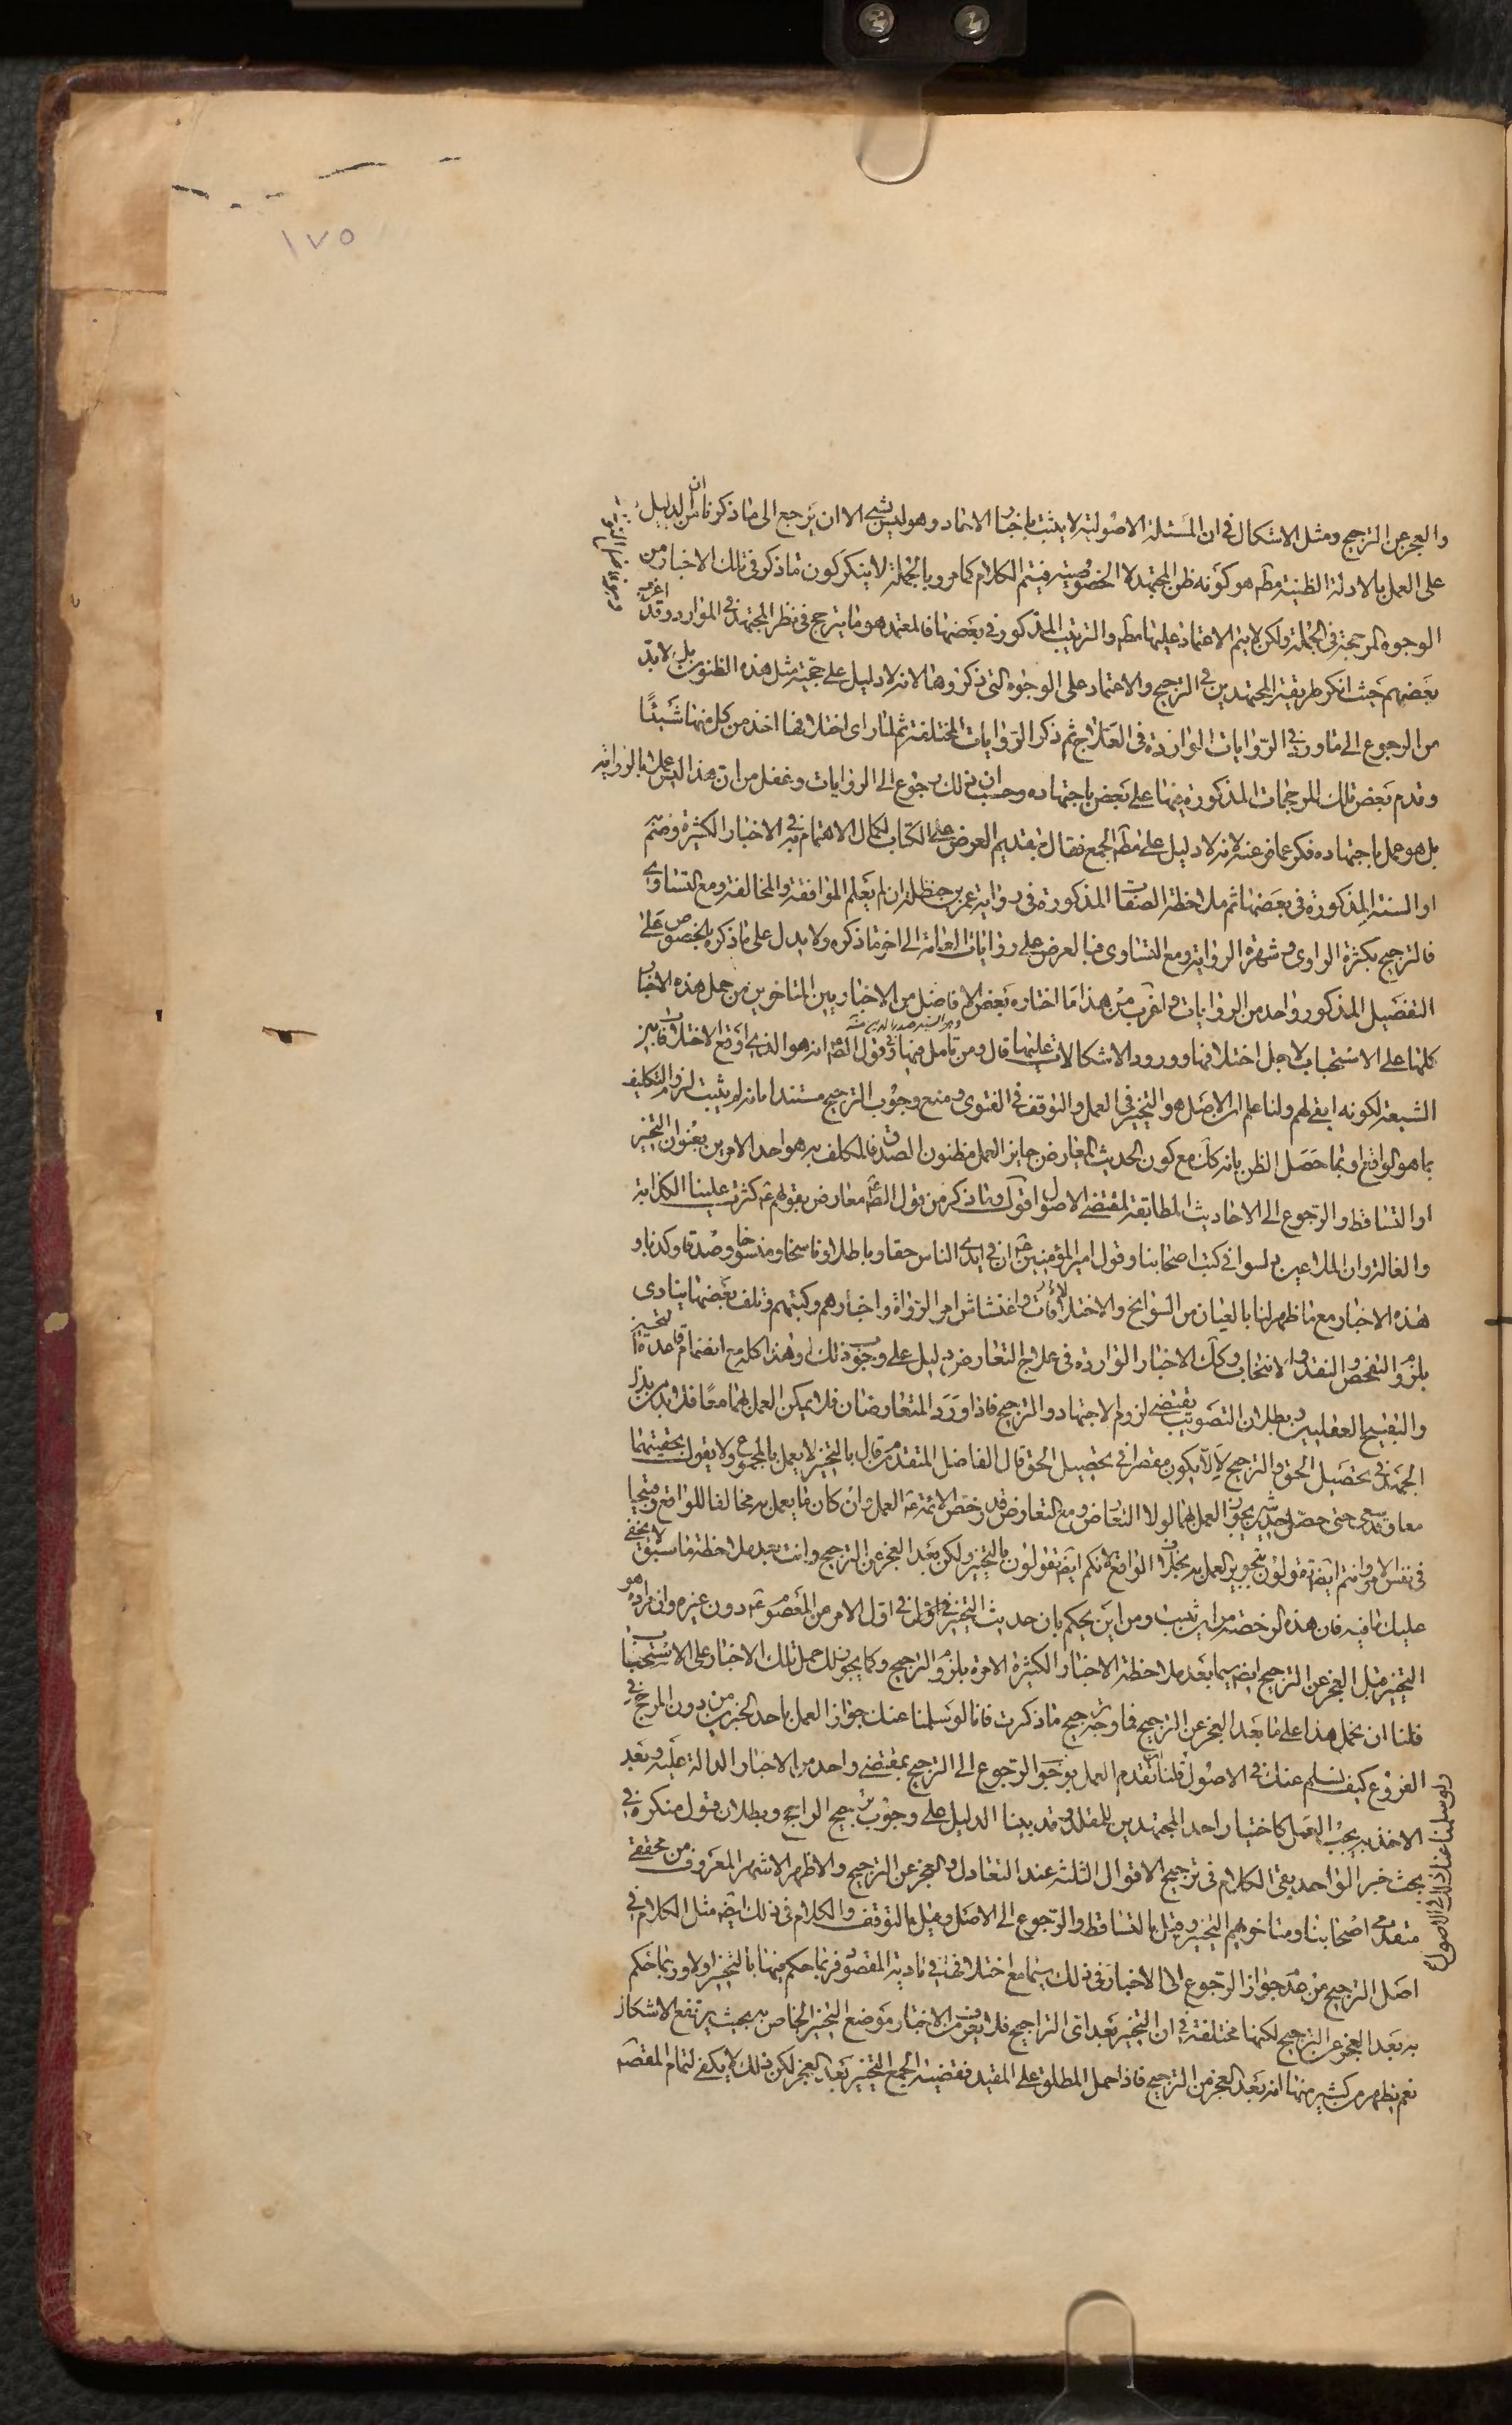 ١٧٥
والعجز عن الترجيح ومثل الاشكال في ان المسئلة الاصولية لا يثبت باخبار الاحاد وهو ليس بشئ الا ان يرجع الى ما ذكرنا من ان الدليل
على العمل بالادلة الظنية مطم هو كونه ظن المجتهد لا الخصوصية فيتم الكلام كما مر وبالجملة لا ينكر كون ما ذكر في تلك الاخبار من
الوجوه المرجحة في الجملة ولكن لا يتم الاعتماد عليها مطم والترتيب المذكور في بعضها فالمعتمد هو ما يترجح في نظر المجتهد في الموارد وقد اغرب
بعضهم حيث انكر طريقة المجتهدين في الترجيح والاعتماد على الوجوه التى ذكروها لانه لا دليل على حجية مثل هذه الظنون بل لا بد
من الرجوع الى ما ورد في الروايات الواردة في العلاج ثم ذكر الروايات المختلفة ثم لما راى اختلافها اخذ من كل منها شيئا
وقدم بعض تلك المرجحات المذكورة فيها على بعض باجتهاده وحسب ان ذلك رجوع الى الروايات وغفل من ان هذا ليس عملا بالرواية
بل هو عمل باجتهاده فكر عما فر عنه لانه لا دليل على مطم الجمع فقال بتقديم العرض على الكتاب لكمال الاهتمام به في الاخبار الكثيرة وضم
او السنة المذكورة في بعضها ثم ملاحظة الصفات المذكورة في رواية عمر بن حنظلة ان لم يعلم الموافقة والمخالفة ومع التساوى
فالترجيح بكثرة الراوى وشهرة الرواية ومع التساوى فبالعرض على روايات العامة الى اخر ما ذكره ولا يدل على ما ذكره بالخصوص على
التفصيل المذكور واحد من الروايات واغرب من هذا ما اختاره بعض الافاضل من الاخباريين المتاخرين من حمل هذه الاخبار
وهو السيد صدر الدين منه
كلها على الاستحباب لاجل اختلافها وورود الاشكالات عليها قال ومن تامل فيها وفي قول الصم انه هو الذى اوقع الاختلاف بين
الشيعة لكونه ابقى لهم ولنا علم ان الاصل هو التخيير في العمل والتوقف في الفتوى ومنع وجوب الترجيح مستندا بانه لم يثبت لزوم التكليف
بما هو الواقع وبما حصل الظن بانه كك مع كون الحديث المعارض جايز العمل مظنون الصدق فالمكلف به هو احد الامرين بعنوان التخيير
او التساقط والرجوع الى الاحاديث المطابقة لمقتضى الاصول اقول وما ذكر من قول الصم معارض بقولهم ع كثرت علينا الكذابة
والغالة وان الملاعين دسوا في كتب اصحابنا وقول امير المؤمنين ع ان في ايدى الناس حقا وباطلا وناسخا ومنسوخا وصدقا وكذبا و
هذه الاخبار مع ما ظهر لنا بالعيان من السوانح والاختلافات واغتشاش امر الرواة واخبارهم وكتبهم وتلف بعضها ينادى
بلزوم التفحص والنقد والانتخاب وكك الاخبار الواردة في علاج التعارض دليل على وجوب ذلك وهذا كله مع انضمام قاعدة التحسين
والتقبيح العقليين وبطلان التصويب يقتضى لزوم الاجتهاد والترجيح فاذا ورد المتعارضان فلا يمكن العمل بهما معا فلا بد من بذل
الجهد في تحصيل الحق والترجيح لئلا يكون مقصرا في تحصيل الحق قال الفاضل المتقدم من قال بالتخيير لا يعمل بالمجموع ولا يقول بحقيتهما
معا وقد سعى حتى حصل حديثين يجوز العمل بهما لولا التعارض ومع التعارض قد رخص الائمة ع العمل وان كان ما يعمل به مخالفا للواقع وقبيحا
في نفس الامر وانتم ايضا تقولون بتجويز العمل به بخلاف الواقع لانكم ايضا تقولون بالتخيير ولكن بعد العجز عن الترجيح وانت بعد ملاحظة ما سبق لا يخفى
عليك ما فيه فان هذه الرخصة من اين ثبت ومن اين يحكم بان حديث التخيير في اول الامر من المعصوم ع دون غيره وان مراده هو
التخيير قبل العجز عن الترجيح ايضا سيما بعد ملاحظة الاخبار الكثيرة الامرة بلزوم الترجيح وكما يجوز لك حمل تلك الاخبار على الاستحباب
فلنا ان نحمل هذا على ما بعد العجز عن الترجيح فما وجه ترجيح ما ذكرت فانا لو سلمنا عنك جواز العمل باحد الخبرين من دون المرجح في
الفروع كيف نسلم عنك في الاصول قلنا تقدم العمل بوجوب الرجوع الى الترجيح بمقتضى واحد من الاخبار الدالة عليه وبعد
الاخذ به يجب العمل كاختيار احد المجتهدين للمقلد وقد بينا الدليل على وجوب ترجيح الراجح وبطلان قول منكره في
بحث خبر الواحد بقى الكلام في ترجيح الاقوال الثلثة عند التعادل والعجز عن الترجيح والاظهر الاشهر المعروف من محققى
متقدمى اصحابنا ومتاخريهم التخيير وقيل بالتساقط والرجوع الى الاصل وقيل بالتوقف والكلام في ذلك ايضا مثل الكلام في
اصل الترجيح من عدم جواز الرجوع الى الاخبار في ذلك سيما مع اختلافها في تادية المقصود فربما حكم فيها بالتخيير اولا وربما حكم
به بعد العجز عن الترجيح لكنها مختلفة في ان التخيير بعد اى التراجيح فلا يعرف من الاخبار موضع التخيير الخاص به بحيث يرتفع الاشكال
نعم يظهر من كثير منها انه بعد العجز من الترجيح فاذا حمل المطلق على المقيد فقضية الجمع التخيير بعد العجز لكن ذلك لا يكفى لتمام المقصد
ولو سلمنا عنك ذلك في الاصول